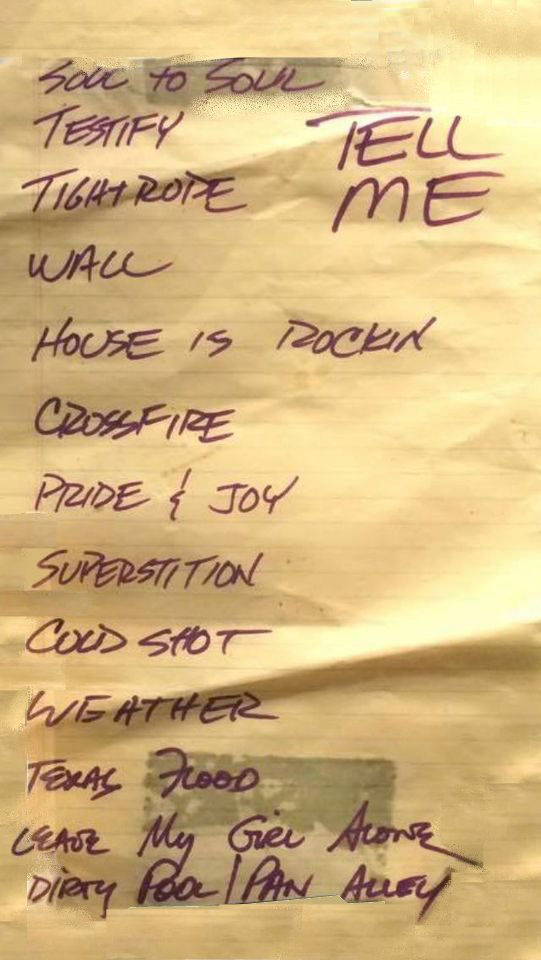 SOUL TO SOUL
TESTIFY
TELL
TIGHTROPE
ME
WALL
HOUSE IS ROCKIN
CROSSFIRE
PRIDE & JOY
SUPERSTITION
COLD SHOT
WEATHER
TEXAS FLOOD
LEAVE My GiRL ALONE
DIRTY POOL/PAN ALLEY